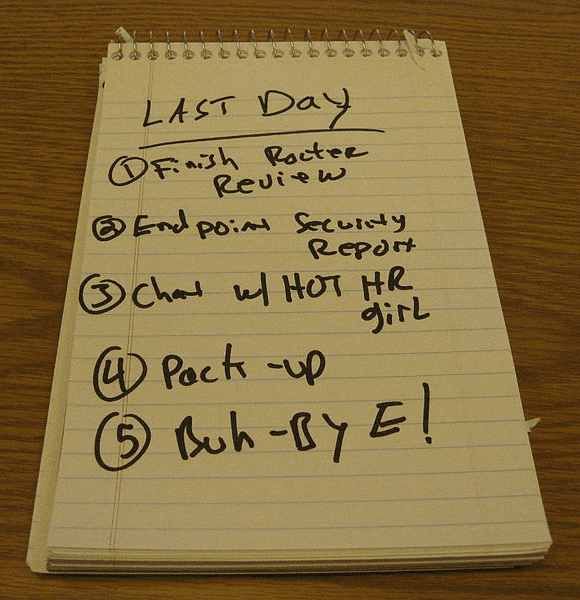 LAST Day
① Finish Router
Review
② Endpoint Security
Report
③ Chat w/ HOT HR
girl
④ Pack-up
⑤ Buh-ByE!